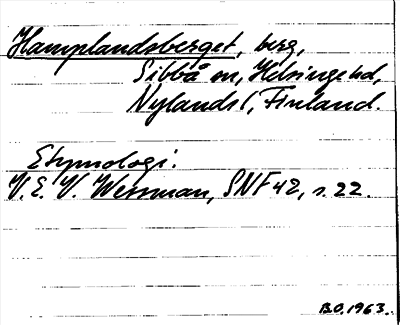 Hamplandsberget, berg,
Sibbå sn, Helsinge hd,
Nylands l, Finland.
Etymologi:
V. E. V. Wessman, SNF 42, s. 22.
B.O. 1963.